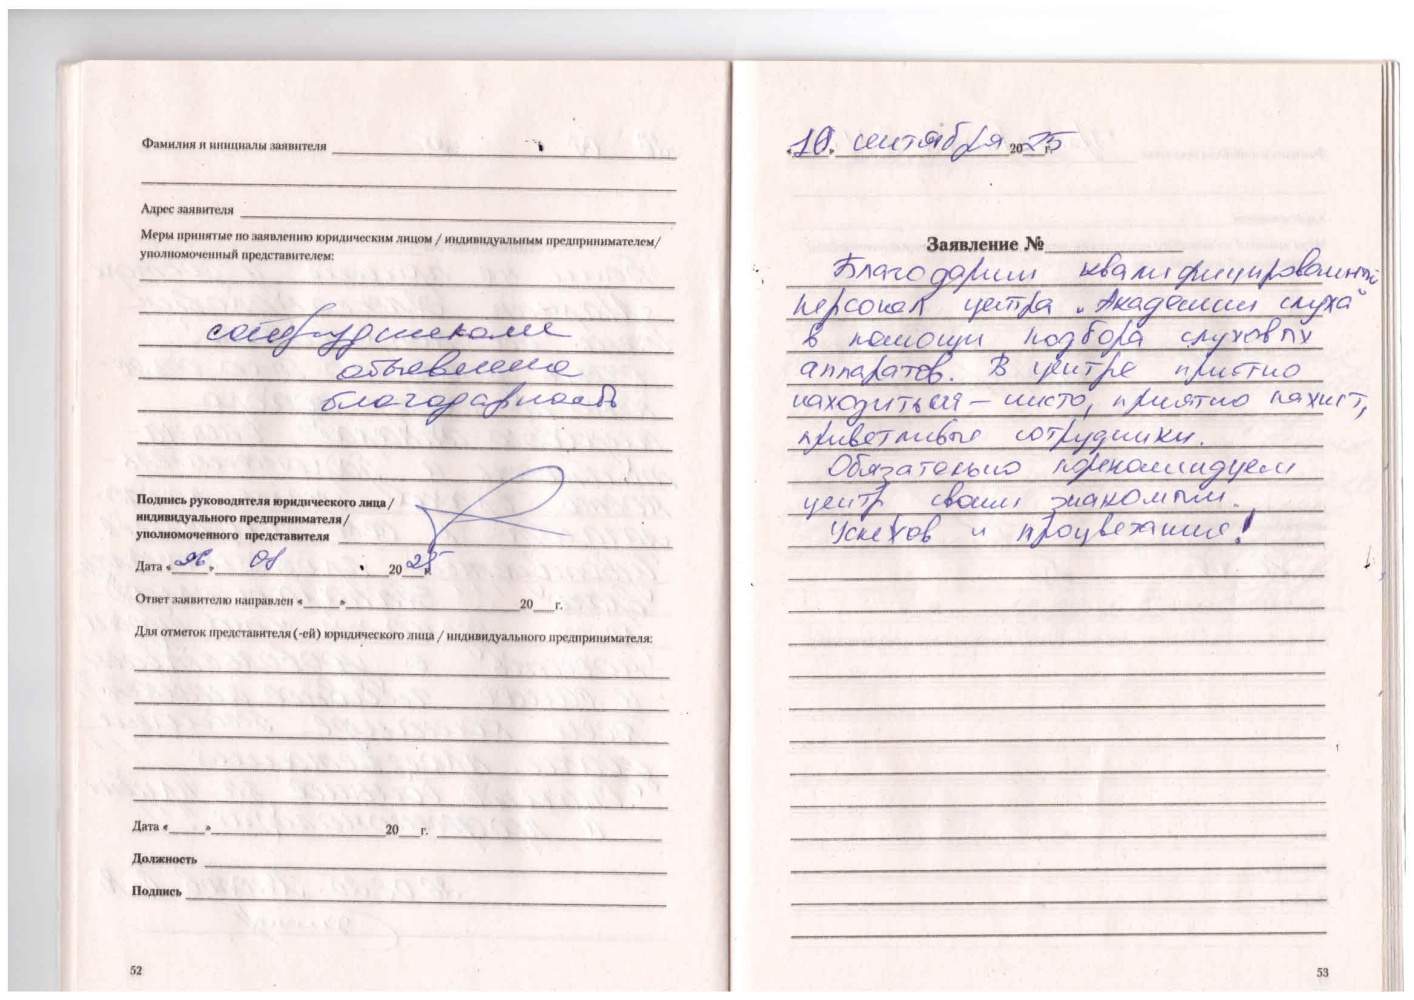 Фамилия и инициалы заявителя
Адрес заявителя
Меры принятые по заявлению юридическим лицом / индивидуальным предпринимателем/
уполномоченный представителем:
сотрудникам
объявлена
благодарность
Подпись руководителя юридического лица /
индивидуального предпринимателя /
уполномоченного представителя
Дата «26» 01 2025 г.
Ответ заявителю направлен «___»___ 20__г.
Для отметок представителя (-ей) юридического лица / индивидуального предпринимателя:
Дата «___»___ 20__г.
Должность
Подпись
52
«10» сентября 2025 г.
Заявление №
Благодарим квалифицированный
персонал центра „Академии слуха"
в помощи подбора слуховых
аппаратов. В центре приятно
находиться – чисто, приятно пахнет,
приветливые сотрудники.
Обязательно порекомендуем
центр своим знакомым.
Успехов и процветание!
53